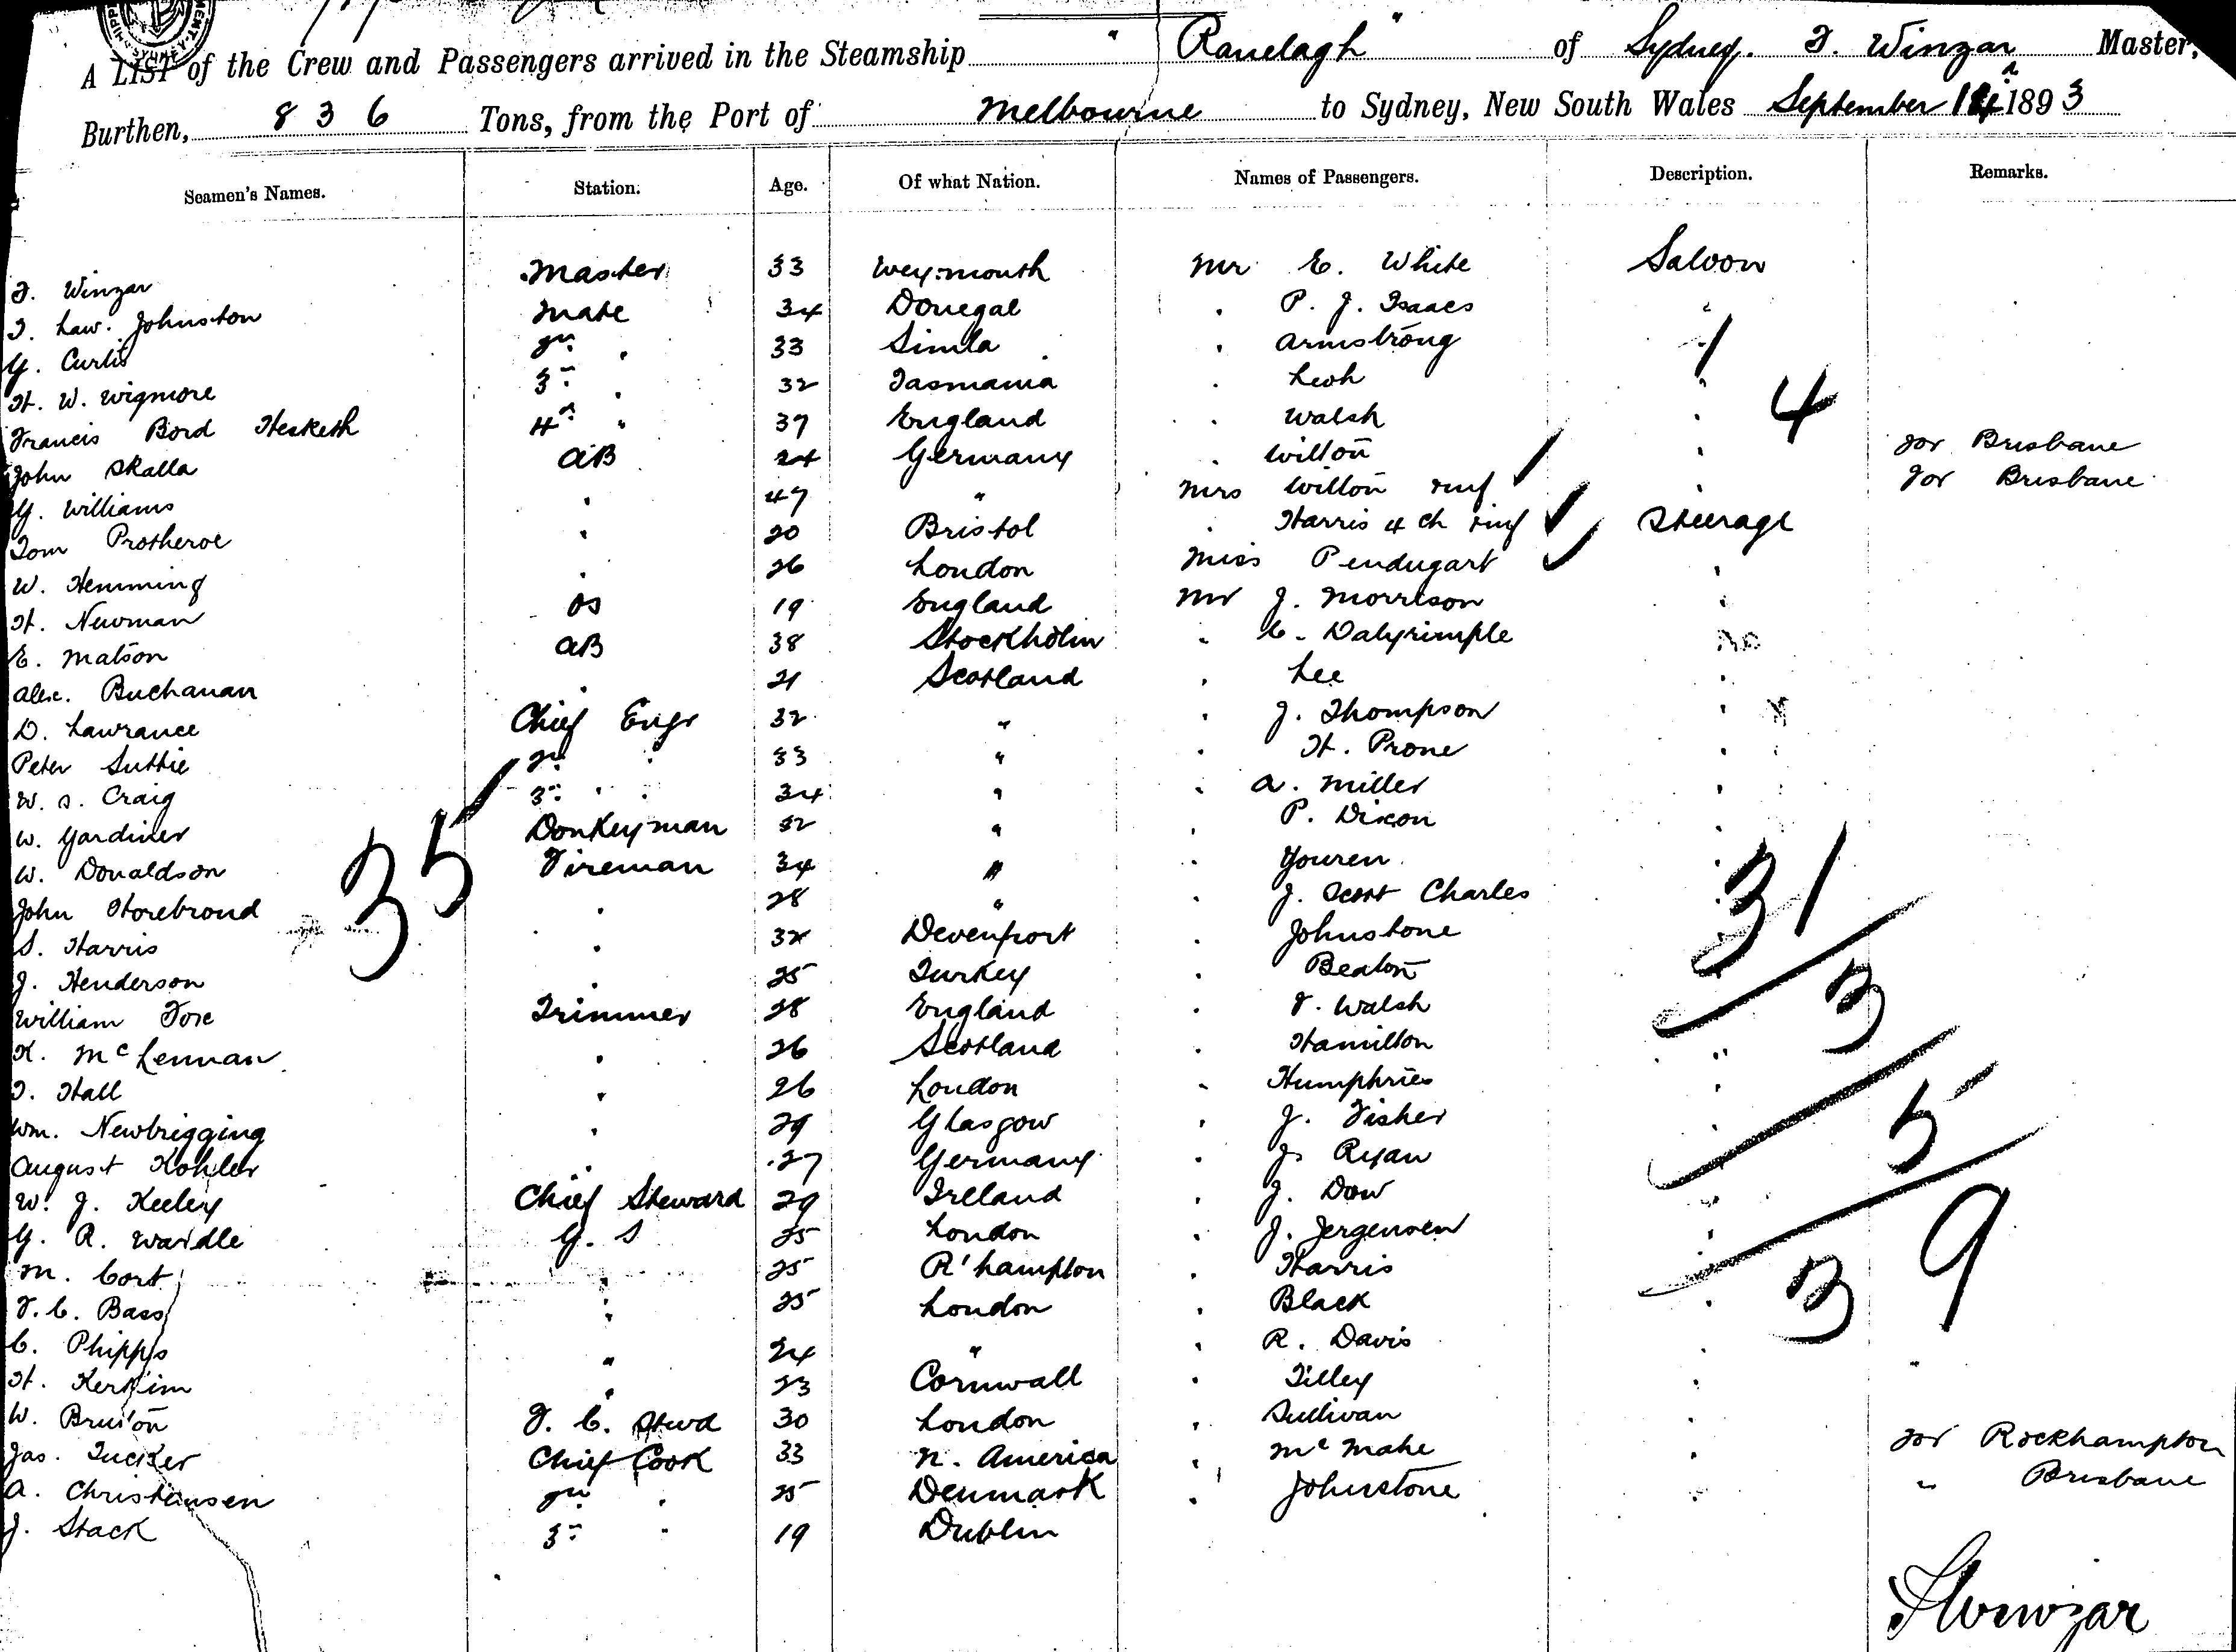 A LIST of the Crew and Passengers arrived in the Steamship " Ranelagh " of Sydney. F. Winzar Master,
Burthen, 836 Tons, from the Port of Melbourne to Sydney, New South Wales September 1893
Seamen's Names. Station. Age. Of what Nation. Names of Passengers. Description. Remarks.
F. Winzar Master 33 Weymouth Mr E. White Saloon
T. Law. Johnston Mate 34 Donegal " P. J. Isaacs "
G. Curtis 2nd " 33 Simla " Armstrong " 1
H. W. Wigmore 3rd " 32 Tasmania " Leoh "
Francis Bord Hesketh 4th " 37 England " Walsh " 4
John Skalla AB 24 Germany " Wilton " for Brisbane
G. Williams " 47 " Mrs Wilton inf " for Brisbane
Tom Protheroe " 20 Bristol " Harris 4 ch inf Steerage
W. Hemming " 26 London Miss Pendugart "
H. Newman OS 19 England Mr J. Morrison "
E. Matson AB 38 Stockholm " C. Dalyrimple
Alex. Buchanan " 21 Scotland " Lee "
D. Lawrance Chief Engr 32 " " J. Thompson "
Peter Suttie 2nd " 33 " " H. Prone "
W. S. Craig 3rd " 34 " " A. Miller "
W. Gardiner Donkeyman 32 " " P. Dixon "
W. Donaldson Fireman 34 " " Youren "
35 31
John Horebroud " 28 " " J. Scott Charles "
S. Harris " 32 Devenport " Johnstone "
J. Henderson " 25 Turkey " Beaton " 3
William Fox Trimmer 28 England " F. Walsh "
K. McLennan " 26 Scotland " Hamilton "
T. Hall " 26 London " Humphries "
Wm. Newbrigging " 29 Glasgow " J. Fisher " 5
August Kohler " 27 Germany " J. Ryan "
W. J. Keeley Chief Steward 29 Ireland " J. Dow "
G. R. Wardle G. S 25 London " J. Jergensen "
M. Cort " 25 R'hampton " Harris " 39
F. C. Bass " 25 London " Black "
C. Phipps " 24 " " R. Davis "
H. Kerkim " 23 Cornwall " Tilley "
W. Bruton F. C. Stwd 30 London " Sullivan "
Jas. Tucker Chief Cook 33 N. America " McMahe " for Rockhampton
A. Christensen 2nd " 25 Denmark " Johnstone " " Brisbane
J. Stack 3rd " 19 Dublin
F Winzar